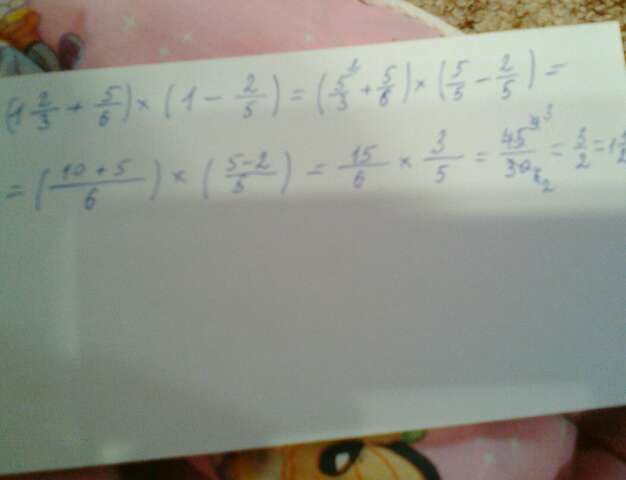 (1 2/3 + 5/6) × (1 − 2/5) = (5/3 ² + 5/6) × (5/5 − 2/5) =
= ((10 + 5)/6) × ((5−2)/5) = 15/6 × 3/5 = 45/30 = 3/2 = 1 1/2